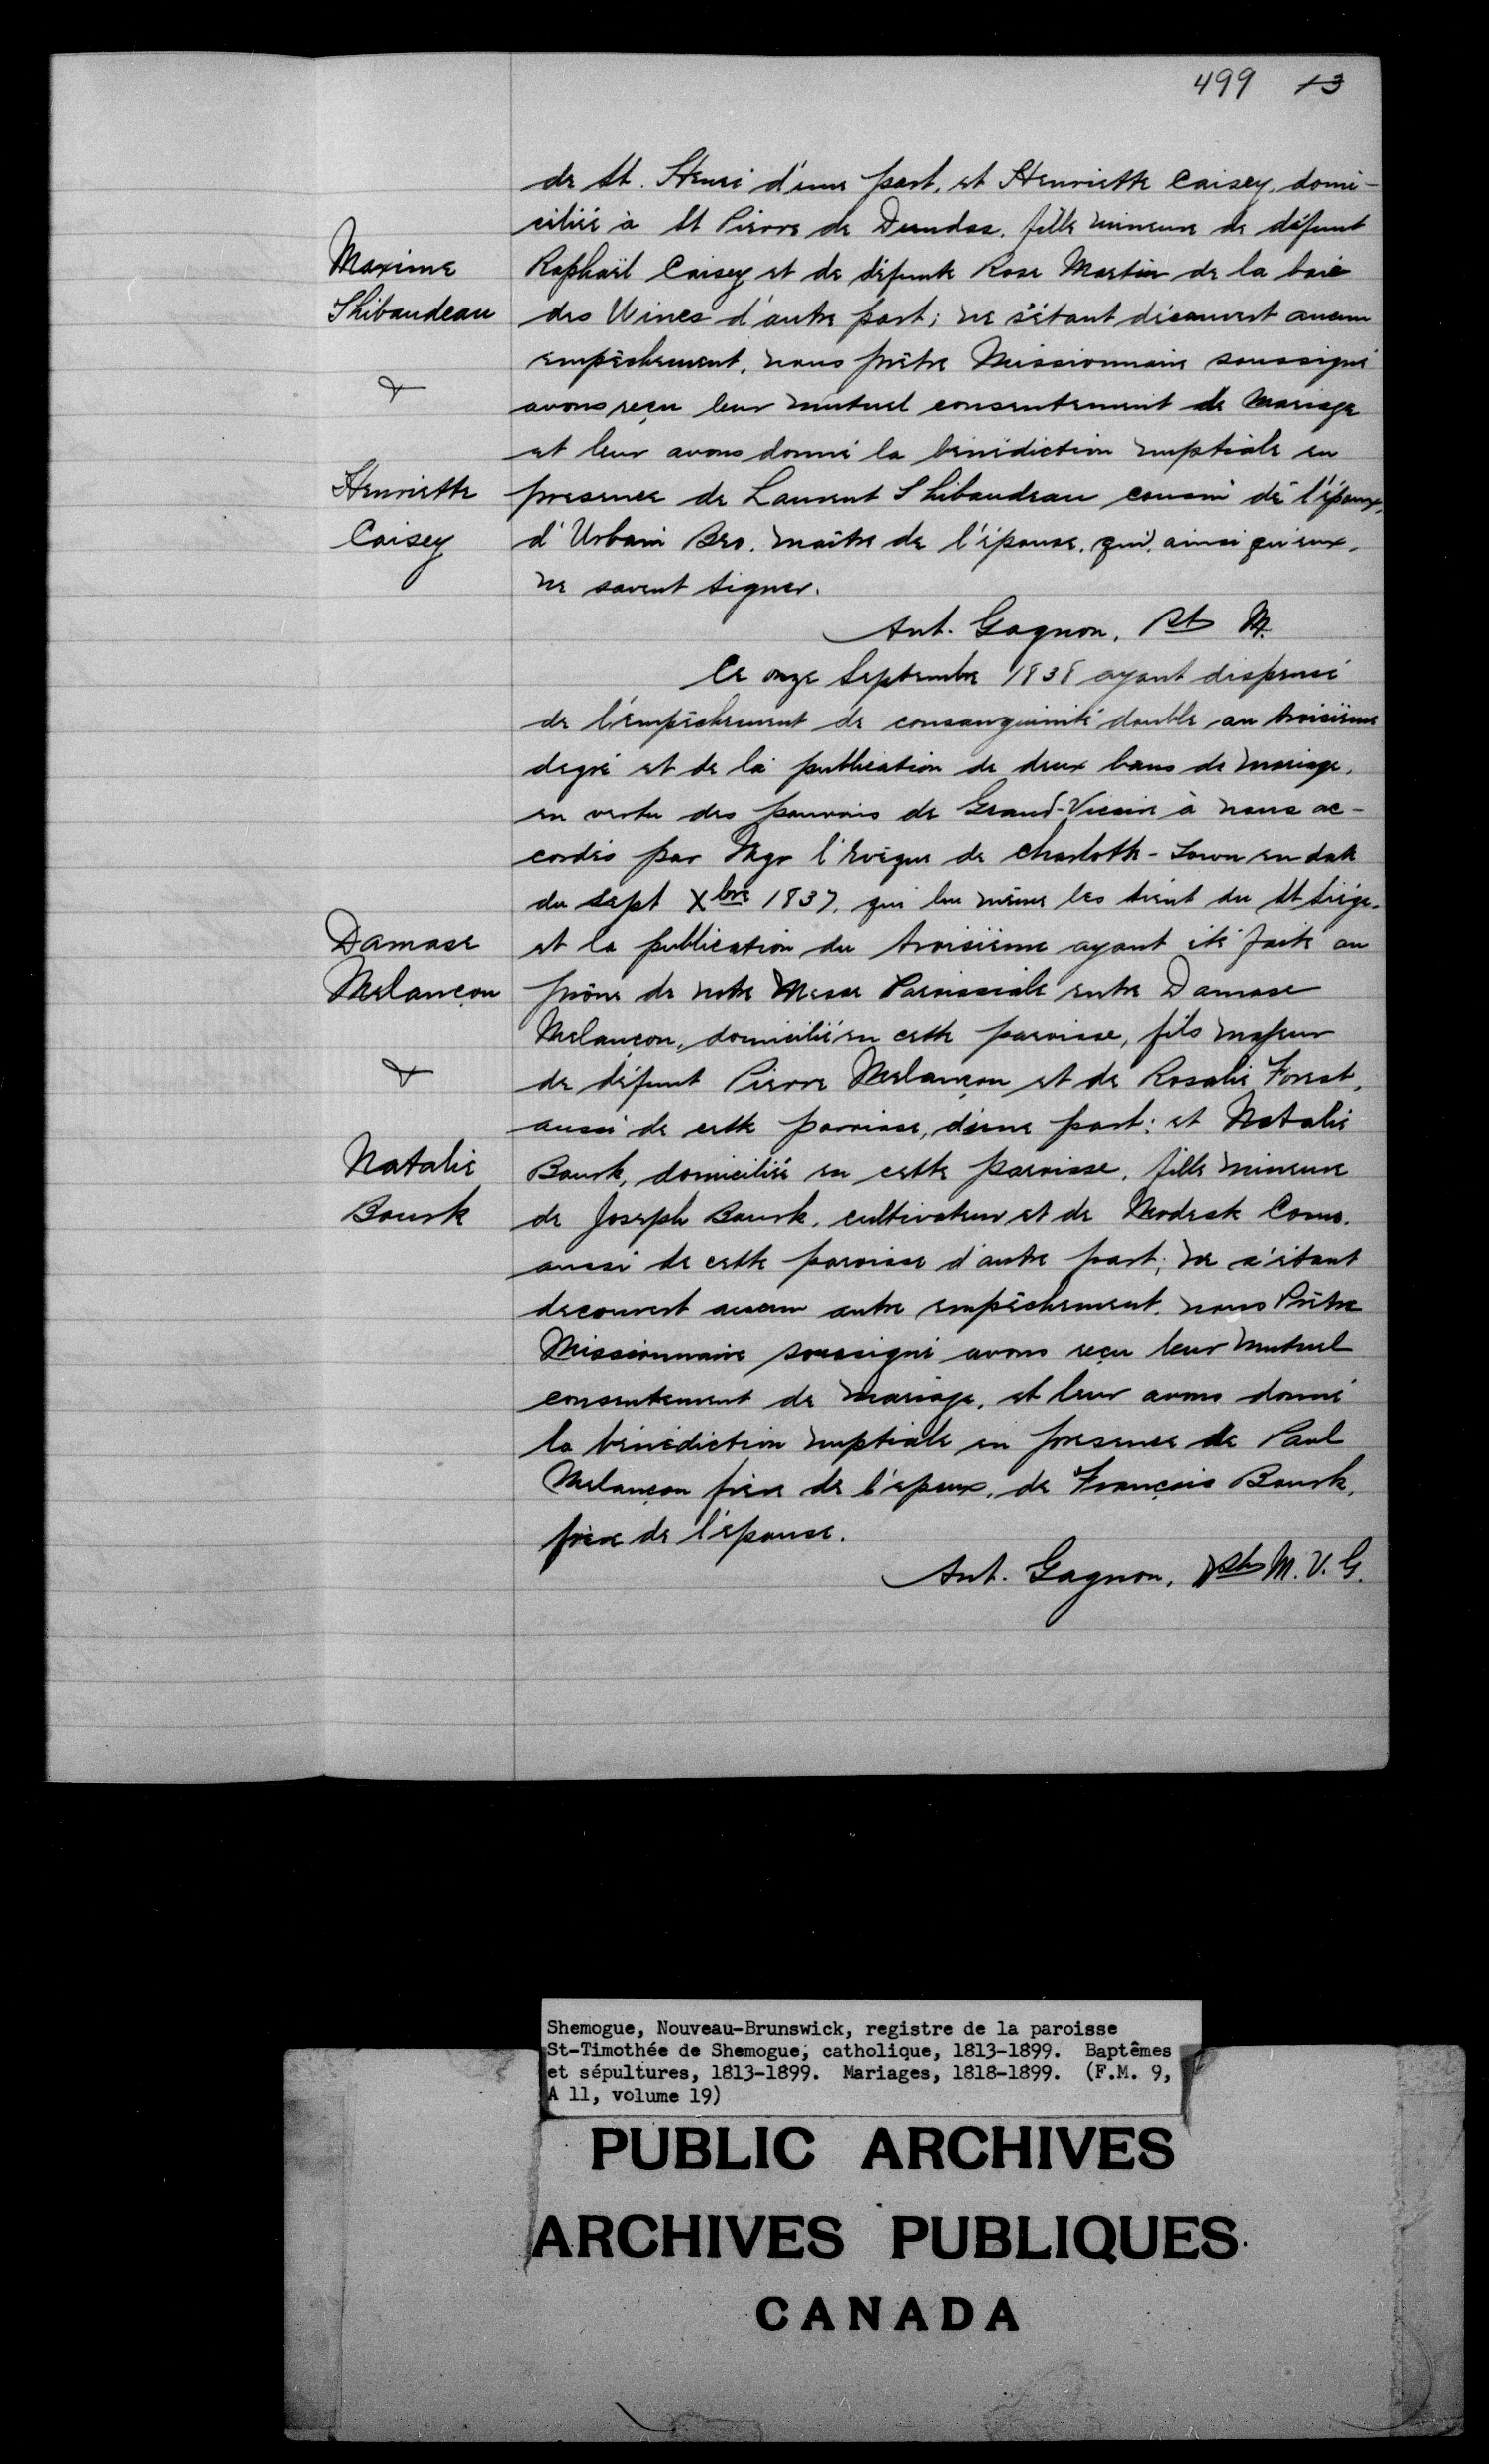 499 13
de St. Henri d'une part, et Henriette Caisey, domi-
ciliée à St Pierre de Dundas, fille mineure de défunt
Maxime
Raphaël Caisey et de défunte Rose Martin de la baie
Thibaudeau
des Wines d'autre part; ne s'étant découvert aucun
empêchement, nous prêtre Missionnaire soussigné
&
avons reçu leur mutuel consentement de Mariage
et leur avons donné la bénédiction nuptiale en
Henriette
presence de Laurent Thibaudeau cousin de l'époux,
Caisey
d'Urbain Bro. maître de l'épouse, qui, ainsi qu'eux,
ne savent signer.
Ant. Gagnon, Ptr M.
Ce onze Septembre 1838 ayant dispensé
de l'empêchement de consanguinité double au troisième
degré et de la publication de deux bans de mariage,
en vertu des pouvoirs de Grand-Vicaire à nous ac-
cordés par Mgr l'Evêque de Charlotte-Town en date
du sept Xbre 1837, qui lui même les tient du St Siége,
Damase
et la publication du troisième ayant été faite au
Melançon
prône de notre Messe Paroissiale entre Damase
Melançon, domicilié en cette paroisse, fils majeur
&
de défunt Pierre Melançon et de Rosalie Forest,
aussi de cette paroisse, d'une part; et Natalie
Natalie
Bourk, domiciliée en cette paroisse, fille mineure
Bourk
de Joseph Bourk, cultivateur et de Modeste Como.
aussi de cette paroisse d'autre part; ne s'étant
decouvert aucun autre empêchement, nous Prêtre
Missionnaire soussigné avons reçu leur mutuel
consentement de mariage, et leur avons donné
la bénédiction nuptiale en presence de Paul
Melançon frère de l'epoux, de François Bourk,
frère de l'épouse.
Ant. Gagnon, Ptr M. V. G.
Shemogue, Nouveau-Brunswick, registre de la paroisse
St-Timothée de Shemogue, catholique, 1813-1899. Baptêmes
et sépultures, 1813-1899. Mariages, 1818-1899. (F.M. 9,
A 11, volume 19)
PUBLIC ARCHIVES
ARCHIVES PUBLIQUES
CANADA